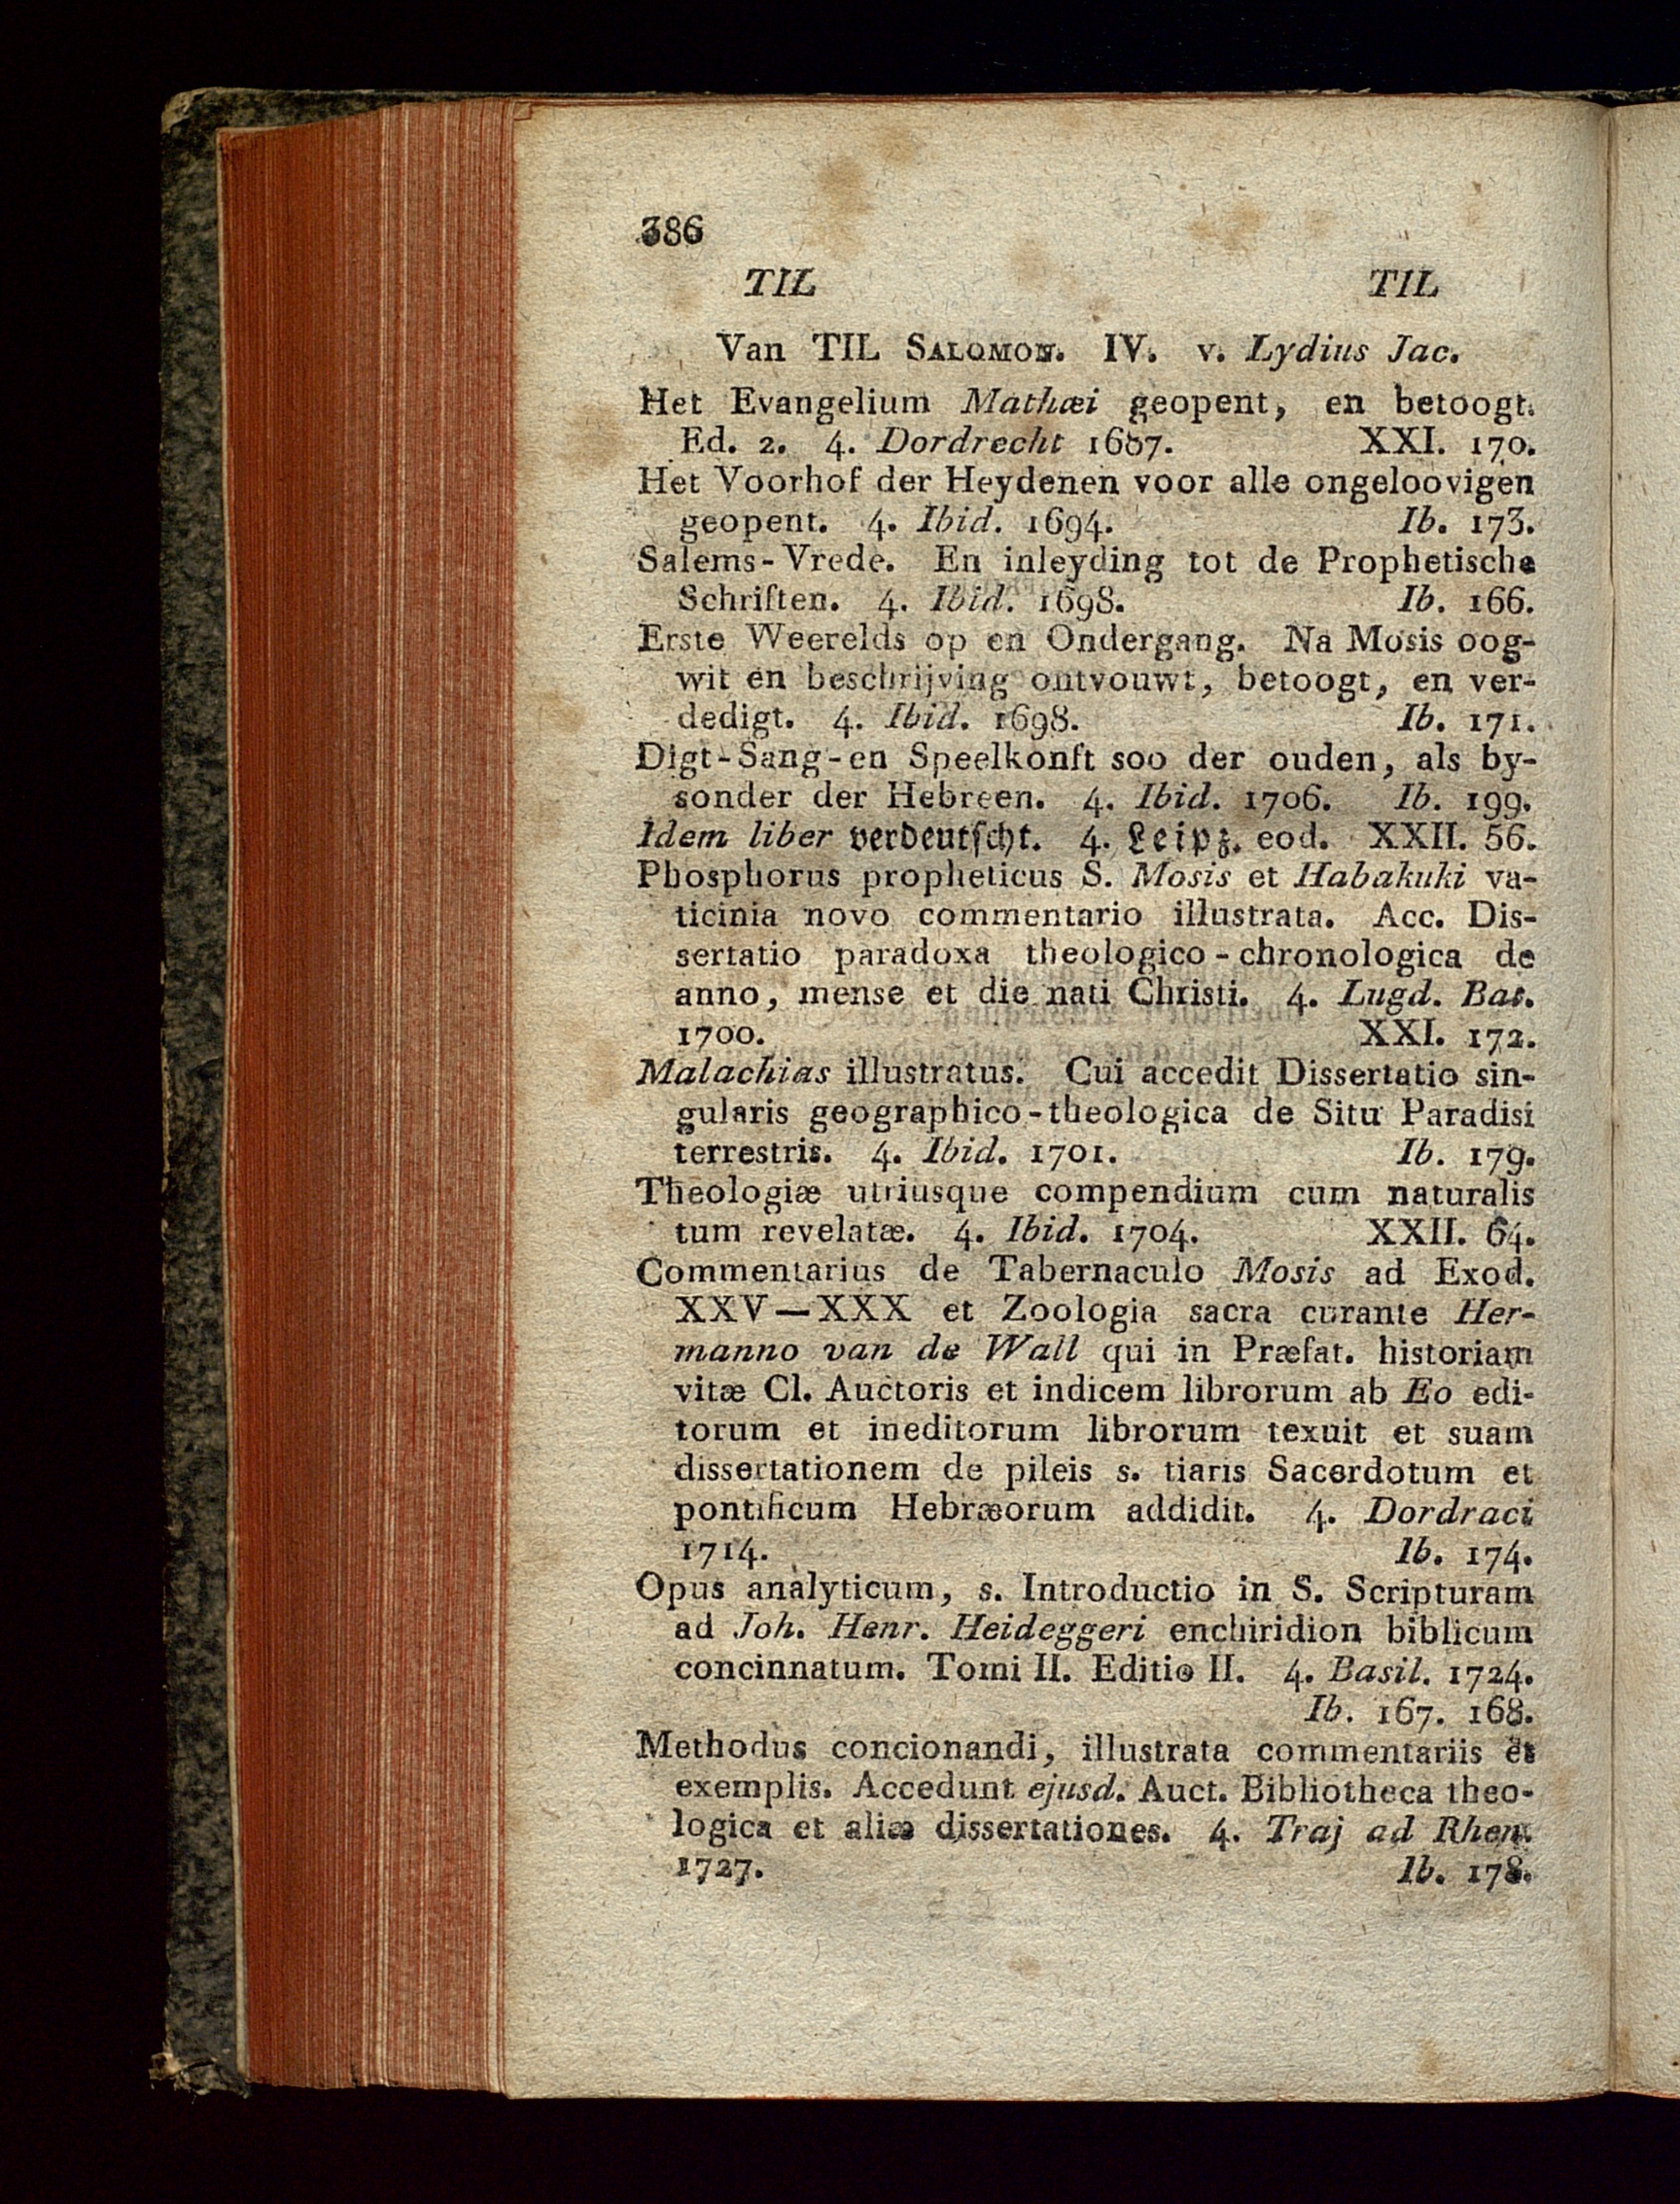 386
TIL TIL
Van TIL SALOMON. IV. v. Lydius Jac.
Het Evangelium Mathæi geopent, en betoogt.
Ed. 2. 4. Dordrecht 1687. XXI. 170.
Het Voorhof der Heydenen voor alle ongeloovigen
geopent. 4. Ibid. 1694. Ib. 173.
Salems-Vrede. En inleyding tot de Prophetische
Schriften. 4. Ibid. 1698. Ib. 166.
Erste Weerelds op en Ondergang. Na Mosis oog-
wit en beschrijving ontvouwt, betoogt, en ver-
dedigt. 4. Ibid. 1698. Ib. 171.
Digt-Sang-en Speelkonst soo der ouden, als by-
sonder der Hebreen. 4. Ibid. 1706. Ib. 199.
Idem liber verdeutscht. 4. Leipz. eod. XXII. 56.
Phosphorus propheticus S. Mosis et Habakuki va-
ticinia novo commentario illustrata. Acc. Dis-
sertatio paradoxa theologico-chronologica de
anno, mense et die nati Christi. 4. Lugd. Bat.
1700. XXI. 172.
Malachias illustratus. Cui accedit Dissertatio sin-
gularis geographico-theologica de Situ Paradisi
terrestris. 4. Ibid. 1701. Ib. 179.
Theologiæ utriusque compendium cum naturalis
tum revelatæ. 4. Ibid. 1704. XXII. 64.
Commentarius de Tabernaculo Mosis ad Exod.
XXV—XXX et Zoologia sacra curante Her-
manno van de Wall qui in Præfat. historiam
vitæ Cl. Auctoris et indicem librorum ab Eo edi-
torum et ineditorum librorum texuit et suam
dissertationem de pileis s. tiaris Sacerdotum et
pontificum Hebræorum addidit. 4. Dordraci
1714. Ib. 174.
Opus analyticum, s. Introductio in S. Scripturam
ad Joh. Henr. Heideggeri enchiridion biblicum
concinnatum. Tomi II. Editio II. 4. Basil. 1724.
Ib. 167. 168.
Methodus concionandi, illustrata commentariis et
exemplis. Accedunt ejusd. Auct. Bibliotheca theo-
logica et aliæ dissertationes. 4. Traj ad Rhen.
1727. Ib. 178.